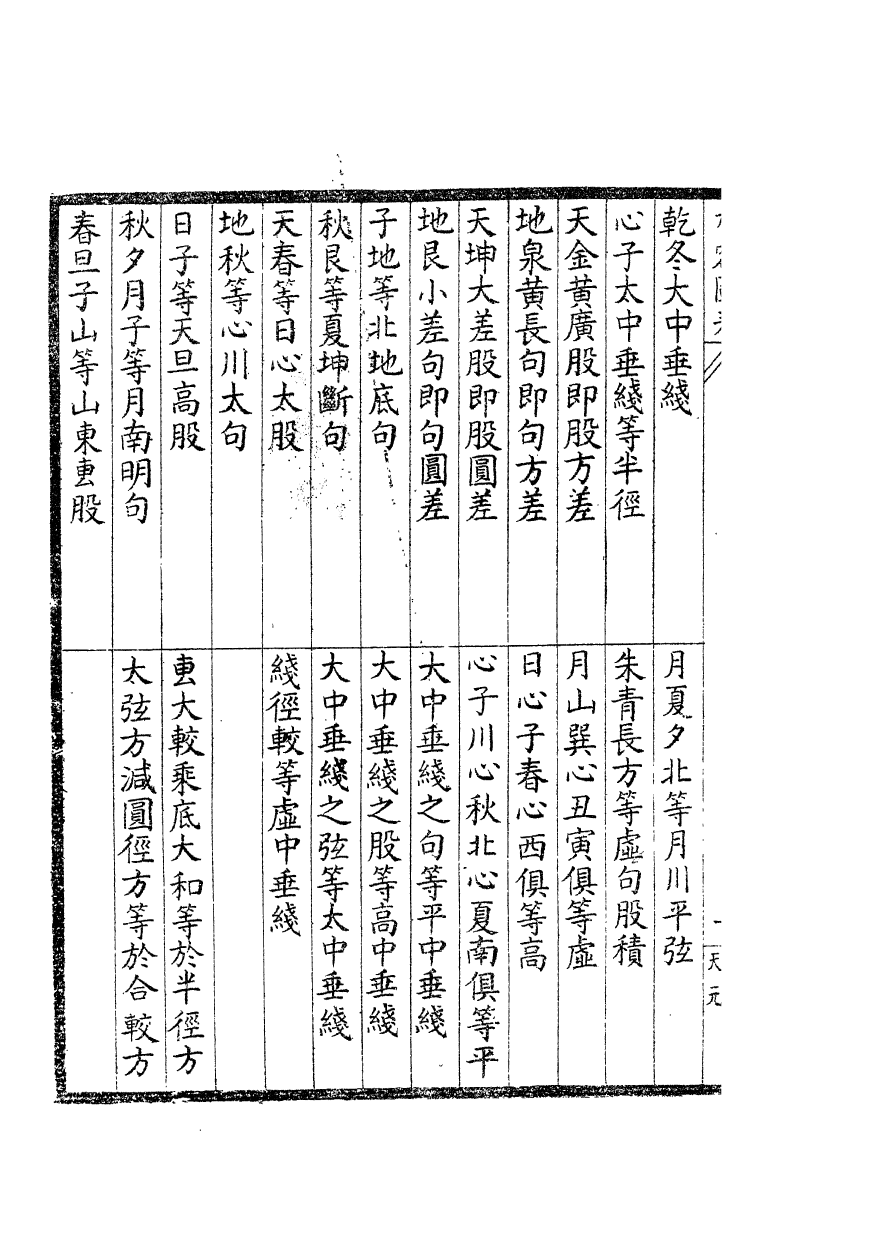 乾冬大中垂綫
心子太中垂綫等半徑
天金黃廣股即股方差
地泉黃長句即句方差
天坤大差股即股圓差
地艮小差句即句圓差
子地等北地底句
秋艮等夏坤斷句
天春等日心太股
地秋等心川太句
日子等天旦高股
秋夕月子等月南明句
春旦子山等山東叀股
月夏夕北等月川平弦
朱青長方等虛句股積
月山巽心丑寅俱等虛
日心子春心西俱等高
心子川心秋北心夏南俱等平
大中垂綫之句等平中垂綫
大中垂綫之股等高中垂綫
大中垂綫之弦等太中垂綫
綫徑較等虛中垂綫
叀大較乘底大和等於半徑方
太弦方減圓徑方等於合較方
一 天元